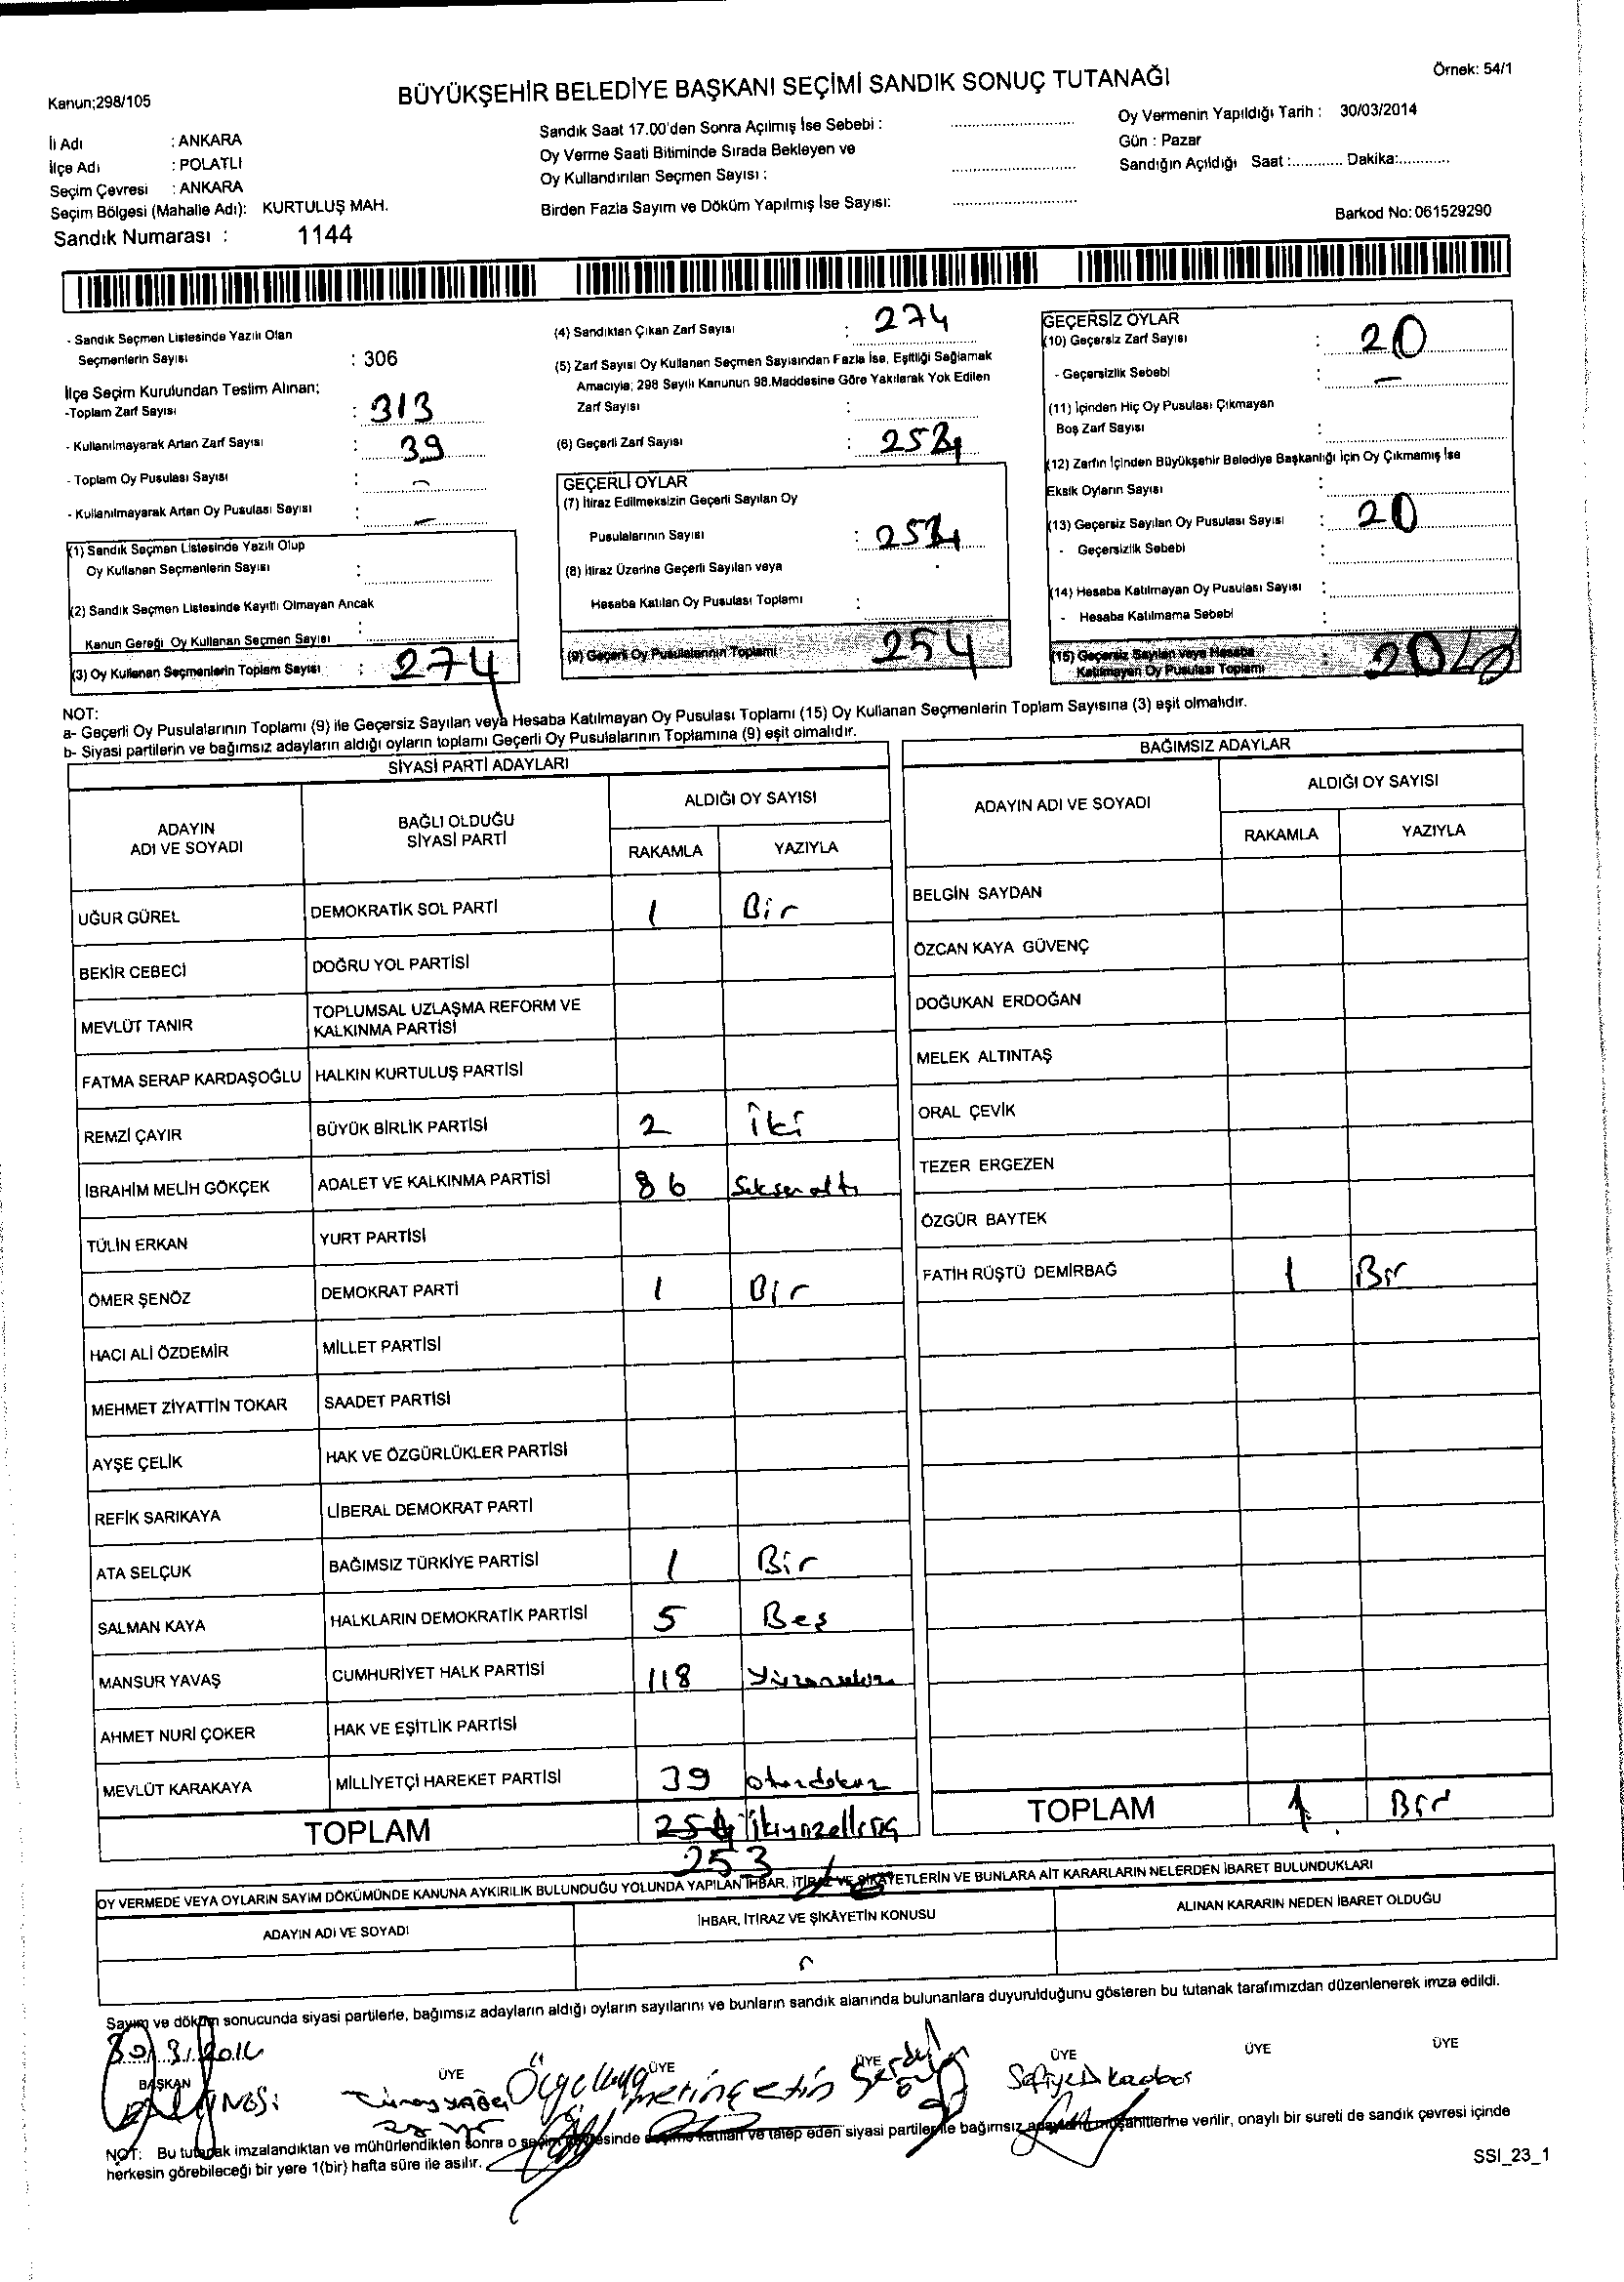 Örnek: 54/1
Kanun;298/105
BÜYÜKŞEHİR BELEDİYE BAŞKANI SEÇİMİ SANDIK SONUÇ TUTANAĞI
İli Adı : ANKARA
İlçe Adı : POLATLI
Seçim Çevresi : ANKARA
Seçim Bölgesi (Mahalle Adı): KURTULUŞ MAH.
Sandık Numarası : 1144
Sandık Saat 17.00'den Sonra Açılmış İse Sebebi :
Oy Verme Saati Bitiminde Sırada Bekleyen ve
Oy Kullandırılan Seçmen Sayısı :
Birden Fazla Sayım ve Döküm Yapılmış İse Sayısı:
Oy Vermenin Yapıldığı Tarih : 30/03/2014
Gün : Pazar
Sandığın Açıldığı Saat :............ Dakika:............
Barkod No: 061529290
- Sandık Seçmen Listesinde Yazılı Olan
Seçmenlerin Sayısı : 306
İlçe Seçim Kurulundan Teslim Alınan;
-Toplam Zarf Sayısı : 313
- Kullanılmayarak Artan Zarf Sayısı : 39
- Toplam Oy Pusulası Sayısı : -
- Kullanılmayarak Artan Oy Pusulası Sayısı : -
(1) Sandık Seçmen Listesinde Yazılı Olup
Oy Kullanan Seçmenlerin Sayısı :
(2) Sandık Seçmen Listesinde Kayıtlı Olmayan Ancak
Kanun Gereği Oy Kullanan Seçmen Sayısı :
(3) Oy Kullanan Seçmenlerin Toplam Sayısı : 274
(4) Sandıktan Çıkan Zarf Sayısı : 274
(5) Zarf Sayısı Oy Kullanan Seçmen Sayısından Fazla İse, Eşitliği Sağlamak
Amacıyla; 298 Sayılı Kanunun 98.Maddesine Göre Yakılarak Yok Edilen
Zarf Sayısı :
(6) Geçerli Zarf Sayısı : 254
GEÇERLİ OYLAR
(7) İtiraz Edilmeksizin Geçerli Sayılan Oy
Pusulalarının Sayısı : 254
(8) İtiraz Üzerine Geçerli Sayılan veya
Hesaba Katılan Oy Pusulası Toplamı :
(9) Geçerli Oy Pusulalarının Toplamı 254
GEÇERSİZ OYLAR
(10) Geçersiz Zarf Sayısı : 20
- Geçersizlik Sebebi : -
(11) İçinden Hiç Oy Pusulası Çıkmayan
Boş Zarf Sayısı :
(12) Zarfın İçinden Büyükşehir Belediye Başkanlığı İçin Oy Çıkmamış İse
Eksik Oyların Sayısı :
(13) Geçersiz Sayılan Oy Pusulası Sayısı : 20
- Geçersizlik Sebebi :
(14) Hesaba Katılmayan Oy Pusulası Sayısı :
- Hesaba Katılmama Sebebi :
(15) Geçersiz Sayılan veya Hesaba
Katılmayan Oy Pusulası Toplamı : 20
NOT:
a- Geçerli Oy Pusulalarının Toplamı (9) ile Geçersiz Sayılan veya Hesaba Katılmayan Oy Pusulası Toplamı (15) Oy Kullanan Seçmenlerin Toplam Sayısına (3) eşit olmalıdır.
b- Siyasi partilerin ve bağımsız adayların aldığı oyların toplamı Geçerli Oy Pusulalarının Toplamına (9) eşit olmalıdır.
SİYASİ PARTİ ADAYLARI
ADAYIN ADI VE SOYADI BAĞLI OLDUĞU SİYASİ PARTİ ALDIĞI OY SAYISI
RAKAMLA YAZIYLA
UĞUR GÜREL DEMOKRATİK SOL PARTİ 1 Bir
BEKİR CEBECİ DOĞRU YOL PARTİSİ
MEVLÜT TANIR TOPLUMSAL UZLAŞMA REFORM VE KALKINMA PARTİSİ
FATMA SERAP KARDAŞOĞLU HALKIN KURTULUŞ PARTİSİ
REMZİ ÇAYIR BÜYÜK BİRLİK PARTİSİ 2 İki
İBRAHİM MELİH GÖKÇEK ADALET VE KALKINMA PARTİSİ 86 Seksenaltı
TÜLİN ERKAN YURT PARTİSİ
ÖMER ŞENÖZ DEMOKRAT PARTİ 1 Bir
HACI ALİ ÖZDEMİR MİLLET PARTİSİ
MEHMET ZİYATTİN TOKAR SAADET PARTİSİ
AYŞE ÇELİK HAK VE ÖZGÜRLÜKLER PARTİSİ
REFİK SARIKAYA LİBERAL DEMOKRAT PARTİ
ATA SELÇUK BAĞIMSIZ TÜRKİYE PARTİSİ 1 Bir
SALMAN KAYA HALKLARIN DEMOKRATİK PARTİSİ 5 Beş
MANSUR YAVAŞ CUMHURİYET HALK PARTİSİ 118 Yüzonsekiz
AHMET NURİ ÇOKER HAK VE EŞİTLİK PARTİSİ
MEVLÜT KARAKAYA MİLLİYETÇİ HAREKET PARTİSİ 39 Otuzdokuz
TOPLAM 254 İkiyüzelliüç
253
BAĞIMSIZ ADAYLAR
ADAYIN ADI VE SOYADI ALDIĞI OY SAYISI
RAKAMLA YAZIYLA
BELGİN SAYDAN
ÖZCAN KAYA GÜVENÇ
DOĞUKAN ERDOĞAN
MELEK ALTINTAŞ
ORAL ÇEVİK
TEZER ERGEZEN
ÖZGÜR BAYTEK
FATİH RÜŞTÜ DEMİRBAĞ 1 Bir
TOPLAM 1 Bir
OY VERMEDE VEYA OYLARIN SAYIM DÖKÜMÜNDE KANUNA AYKIRILIK BULUNDUĞU YOLUNDA YAPILAN İHBAR, İTİRAZ VE ŞİKAYETLERİN VE BUNLARA AİT KARARLARIN NELERDEN İBARET BULUNDUKLARI
ADAYIN ADI VE SOYADI İHBAR, İTİRAZ VE ŞİKÂYETİN KONUSU ALINAN KARARIN NEDEN İBARET OLDUĞU
Sayım ve döküm sonucunda siyasi partilerle, bağımsız adayların aldığı oyların sayılarını ve bunların sandık alanında bulunanlara duyurulduğunu gösteren bu tutanak tarafımızdan düzenlenerek imza edildi.
BAŞKAN ÜYE ÜYE ÜYE ÜYE ÜYE ÜYE
NOT: Bu tutanak imzalandıktan ve mühürlendikten sonra o seçim çevresinde seçime katılan ve talep eden siyasi partilerle bağımsız adayların müşahitlerine verilir, onaylı bir sureti de sandık çevresi içinde
herkesin görebileceği bir yere 1(bir) hafta süre ile asılır.
SSI_23_1